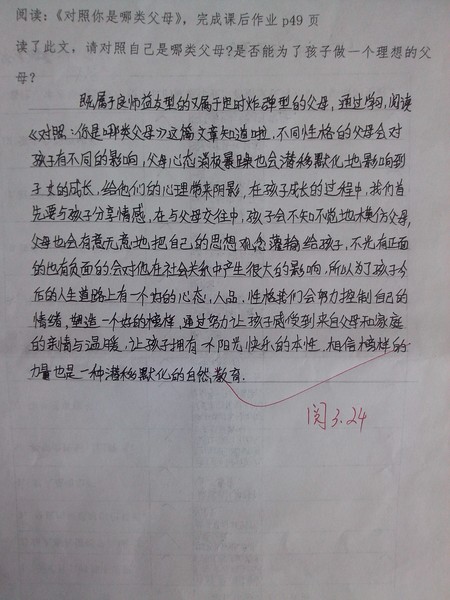 阅读：《对照你是哪类父母》，完成课后作业 p49 页
读了此文，请对照自己是哪类父母?是否能为了孩子做一个理想的父
母？
既属于良师益友型的又属于定时炸弹型的父母，通过学习，阅读
《对照：你是哪类父母》这篇文章知道啦，不同性格的父母会对
孩子有不同的影响，父母心态消极暴躁也会潜移默化地影响到
子女的成长，给他们的心理带来阴影，在孩子成长的过程中，我们首
先要与孩子分享情感，在与父母交往中，孩子会不知不觉地模仿父母，
父母也会有意无意地把自己的思想观念灌输给孩子，不光有正面
的也有负面的会对他在社会关系中产生很大的影响，所以为了孩子今
后的人生道路上有一个好的心态、人品、性格我们会努力控制自己的
情绪，塑造一个好的榜样，通过努力让孩子感受到来自父母和家庭
的亲情与温暖，让孩子拥有个阳光快乐的本性，相信榜样的
力量也是一种潜移默化的自然教育.
阅 3.24